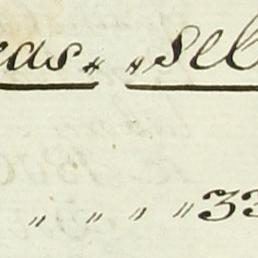 eas. „ sel
„ „ „ „ 33